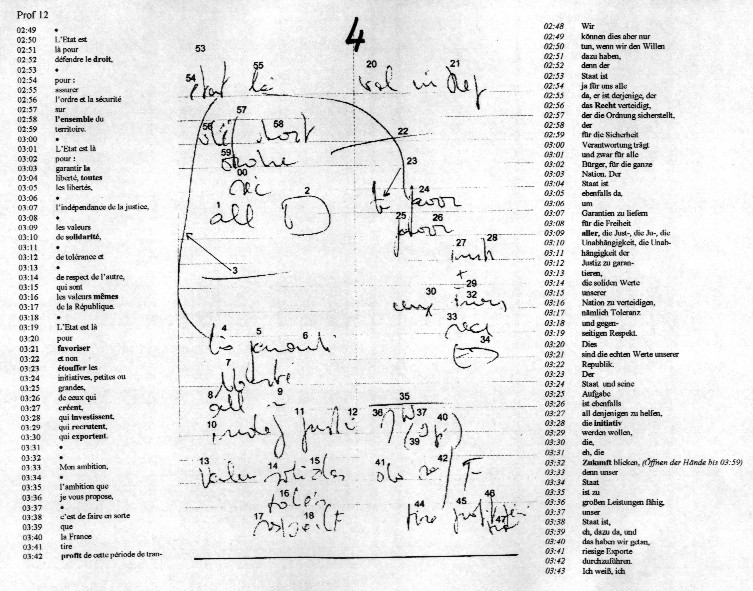 Prof 12
4
02:49 •
02:50 L'Etat est
02:51 là pour
02:52 défendre le droit,
02:53 •
02:54 pour :
02:55 assurer
02:56 l'ordre et la sécurité
02:57 sur
02:58 l'ensemble du
02:59 territoire.
03:00 •
03:01 L'Etat est là
03:02 pour :
03:03 garantir la
03:04 liberté, toutes
03:05 les libertés,
03:06 •
03:07 l'indépendance de la justice,
03:08 •
03:09 les valeurs
03:10 de solidarité,
03:11 •
03:12 de tolérance et
03:13 •
03:14 de respect de l'autre,
03:15 qui sont
03:16 les valeurs mêmes
03:17 de la République.
03:18 •
03:19 L'Etat est là
03:20 pour
03:21 favoriser
03:22 et non
03:23 étouffer les
03:24 initiatives, petites ou
03:25 grandes,
03:26 de ceux qui
03:27 créent,
03:28 qui investissent,
03:29 qui recrutent,
03:30 qui exportent.
03:31 •
03:32 •
03:33 Mon ambition,
03:34 •
03:35 l'ambition que
03:36 je vous propose,
03:37 •
03:38 c'est de faire en sorte
03:39 que
03:40 la France
03:41 tire
03:42 profit de cette période de tran-
53
54 55 20 21
56 57 58
59
00
2
22
23
24
25 26
27 28
29
30 32
33
34
3
4 5 6
7
8 9
10 11 12
35
36 37
39 40
13 14 15
16
17 18
41 42
44 45 46
47
02:48 Wir
02:49 können dies aber nur
02:50 tun, wenn wir den Willen
02:51 dazu haben,
02:52 denn der
02:53 Staat ist
02:54 ja für uns alle
02:55 da, er ist derjenige, der
02:56 das Recht verteidigt,
02:57 der die Ordnung sicherstellt,
02:58 der
02:59 für die Sicherheit
03:00 Verantwortung trägt
03:01 und zwar für alle
03:02 Bürger, für die ganze
03:03 Nation. Der
03:04 Staat ist
03:05 ebenfalls da,
03:06 um
03:07 Garantien zu liefern
03:08 für die Freiheit
03:09 aller, die Just-, die Ju-, die
03:10 Unabhängigkeit, die Unab-
03:11 hängigkeit der
03:12 Justiz zu garan-
03:13 tieren,
03:14 die soliden Werte
03:15 unserer
03:16 Nation zu verteidigen,
03:17 nämlich Toleranz
03:18 und gegen-
03:19 seitigen Respekt.
03:20 Dies
03:21 sind die echten Werte unserer
03:22 Republik.
03:23 Der
03:24 Staat und seine
03:25 Aufgabe
03:26 ist ebenfalls
03:27 all denjenigen zu helfen,
03:28 die initiativ
03:29 werden wollen,
03:30 die,
03:31 eh, die
03:32 Zukunft blicken, (Öffnen der Hände bis 03:59)
03:33 denn unser
03:34 Staat
03:35 ist zu
03:36 großen Leistungen fähig,
03:37 unser
03:38 Staat ist,
03:39 eh, dazu da, und
03:40 das haben wir getan,
03:41 riesige Exporte
03:42 durchzuführen.
03:43 Ich weiß, ich